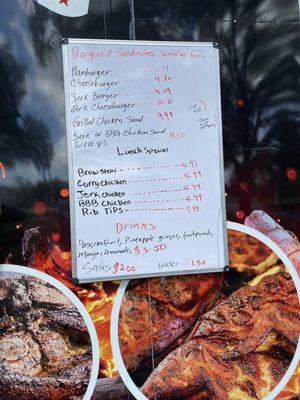 Burgers & Sandwiches Served w/ fries
Hamburger
Cheeseburger 9.70
Jerk Burger 9.49
Jerk Cheeseburger 10.21
Grilled Chicken Sand 9.99
Jerk or BBQ Chicken Sand 11.50
Wraps
Lunch Special
Brow Stew 5.99
Curry Chicken 5.99
Jerk Chicken 5.99
BBB Chicken 5.99
Rib Tips 9.99
Drinks
Passionfruit, Pineapple ginger, fruitpunch,
mango, lemonade, $3.50
Sodas $2.00 Water $1.50